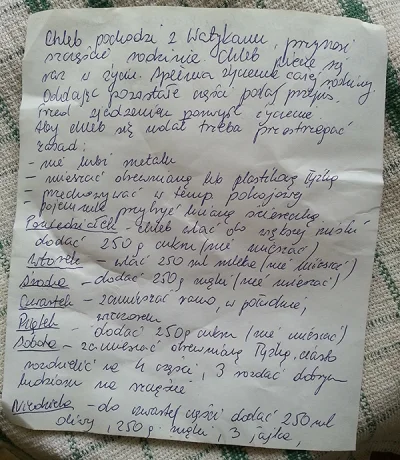 Chleb pochodzi z Watykanu, przynosi
szczęście rodzinie. Chleb piecze się
raz w życiu. Spełnia życzenie całej rodziny.
Oddając pozostałe części podaj przepis.
Przed zjedzeniem pomyśl życzenie.
Aby chleb się udał trzeba przestrzegać
zasad:
- nie lubi metalu
- mieszać drewnianą lub plastikową łyżką
- przechowywać w temp. pokojowej
- pojemnik przykryć lnianą ściereczką
Poniedziałek - chleb wlać do większej miski
dodać 250 g cukru (nie mieszać)
Wtorek - wlać 250 ml mleka (nie mieszać)
Środa - dodać 250 g mąki (nie mieszać)
Czwartek - zamieszać rano, w południe,
wieczorem
Piątek - dodać 250g cukru (nie mieszać)
Sobota - zamieszać drewnianą łyżką, ciasto
rozdzielić na 4 części, 3 rozdać dobrym
ludziom na szczęście
Niedziela - do czwartej części dodać 250 ml
oliwy, 250 g mąki, 3 jajka,